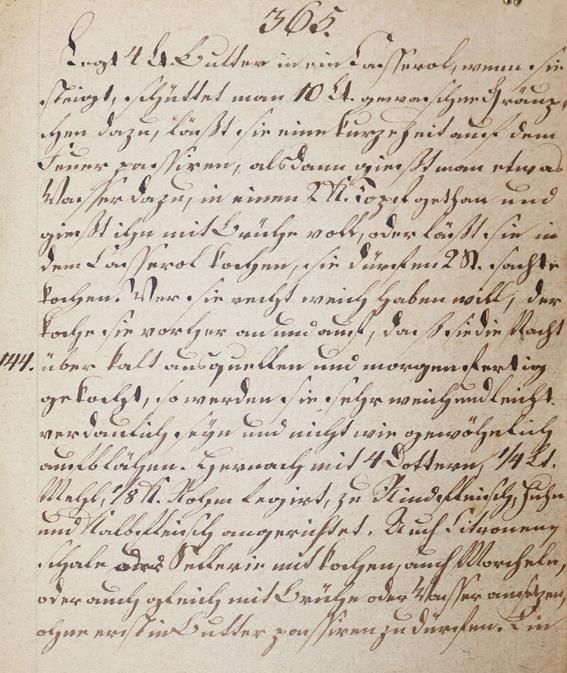 365.
Legt 4 Lt. Butter in ein Casserol, wenn sie
steigt, schüttet man 10 Lt. gewaschne Gräup-
chen dazu, läßt sie eine kurze Zeit auf dem
Feuer passiren, alsdann gießt man etwas
Wasser dazu, in einen 2 K. Topf gethan und
gießt ihn mit Brühe voll, oder läßt sie in
dem Casserol kochen, sie dürfen 2 St. sachte
kochen. Wer sie recht weich haben will, der
koche sie vorher an und auf, daß sie die Nacht
144. über kalt ausquellen und morgen fertig
gekocht, so werden sie sehr weich und leicht
verdaulich seyn und nicht wie gewöhnlich
aufblähen. Hernach mit 4 Dottern, 1/4 Lt.
Mehl, 1/8 K. Rahm legirt, zu Rindfleisch, Huhn
und Kalbfleisch angerichtet. Auch Citronen
schale oder Sellerie mit kochen, auch Morcheln,
oder auch gleich mit Brühe oder Wasser ansetzen,
ohne erst in Butter passiren zu dürfen. Ein